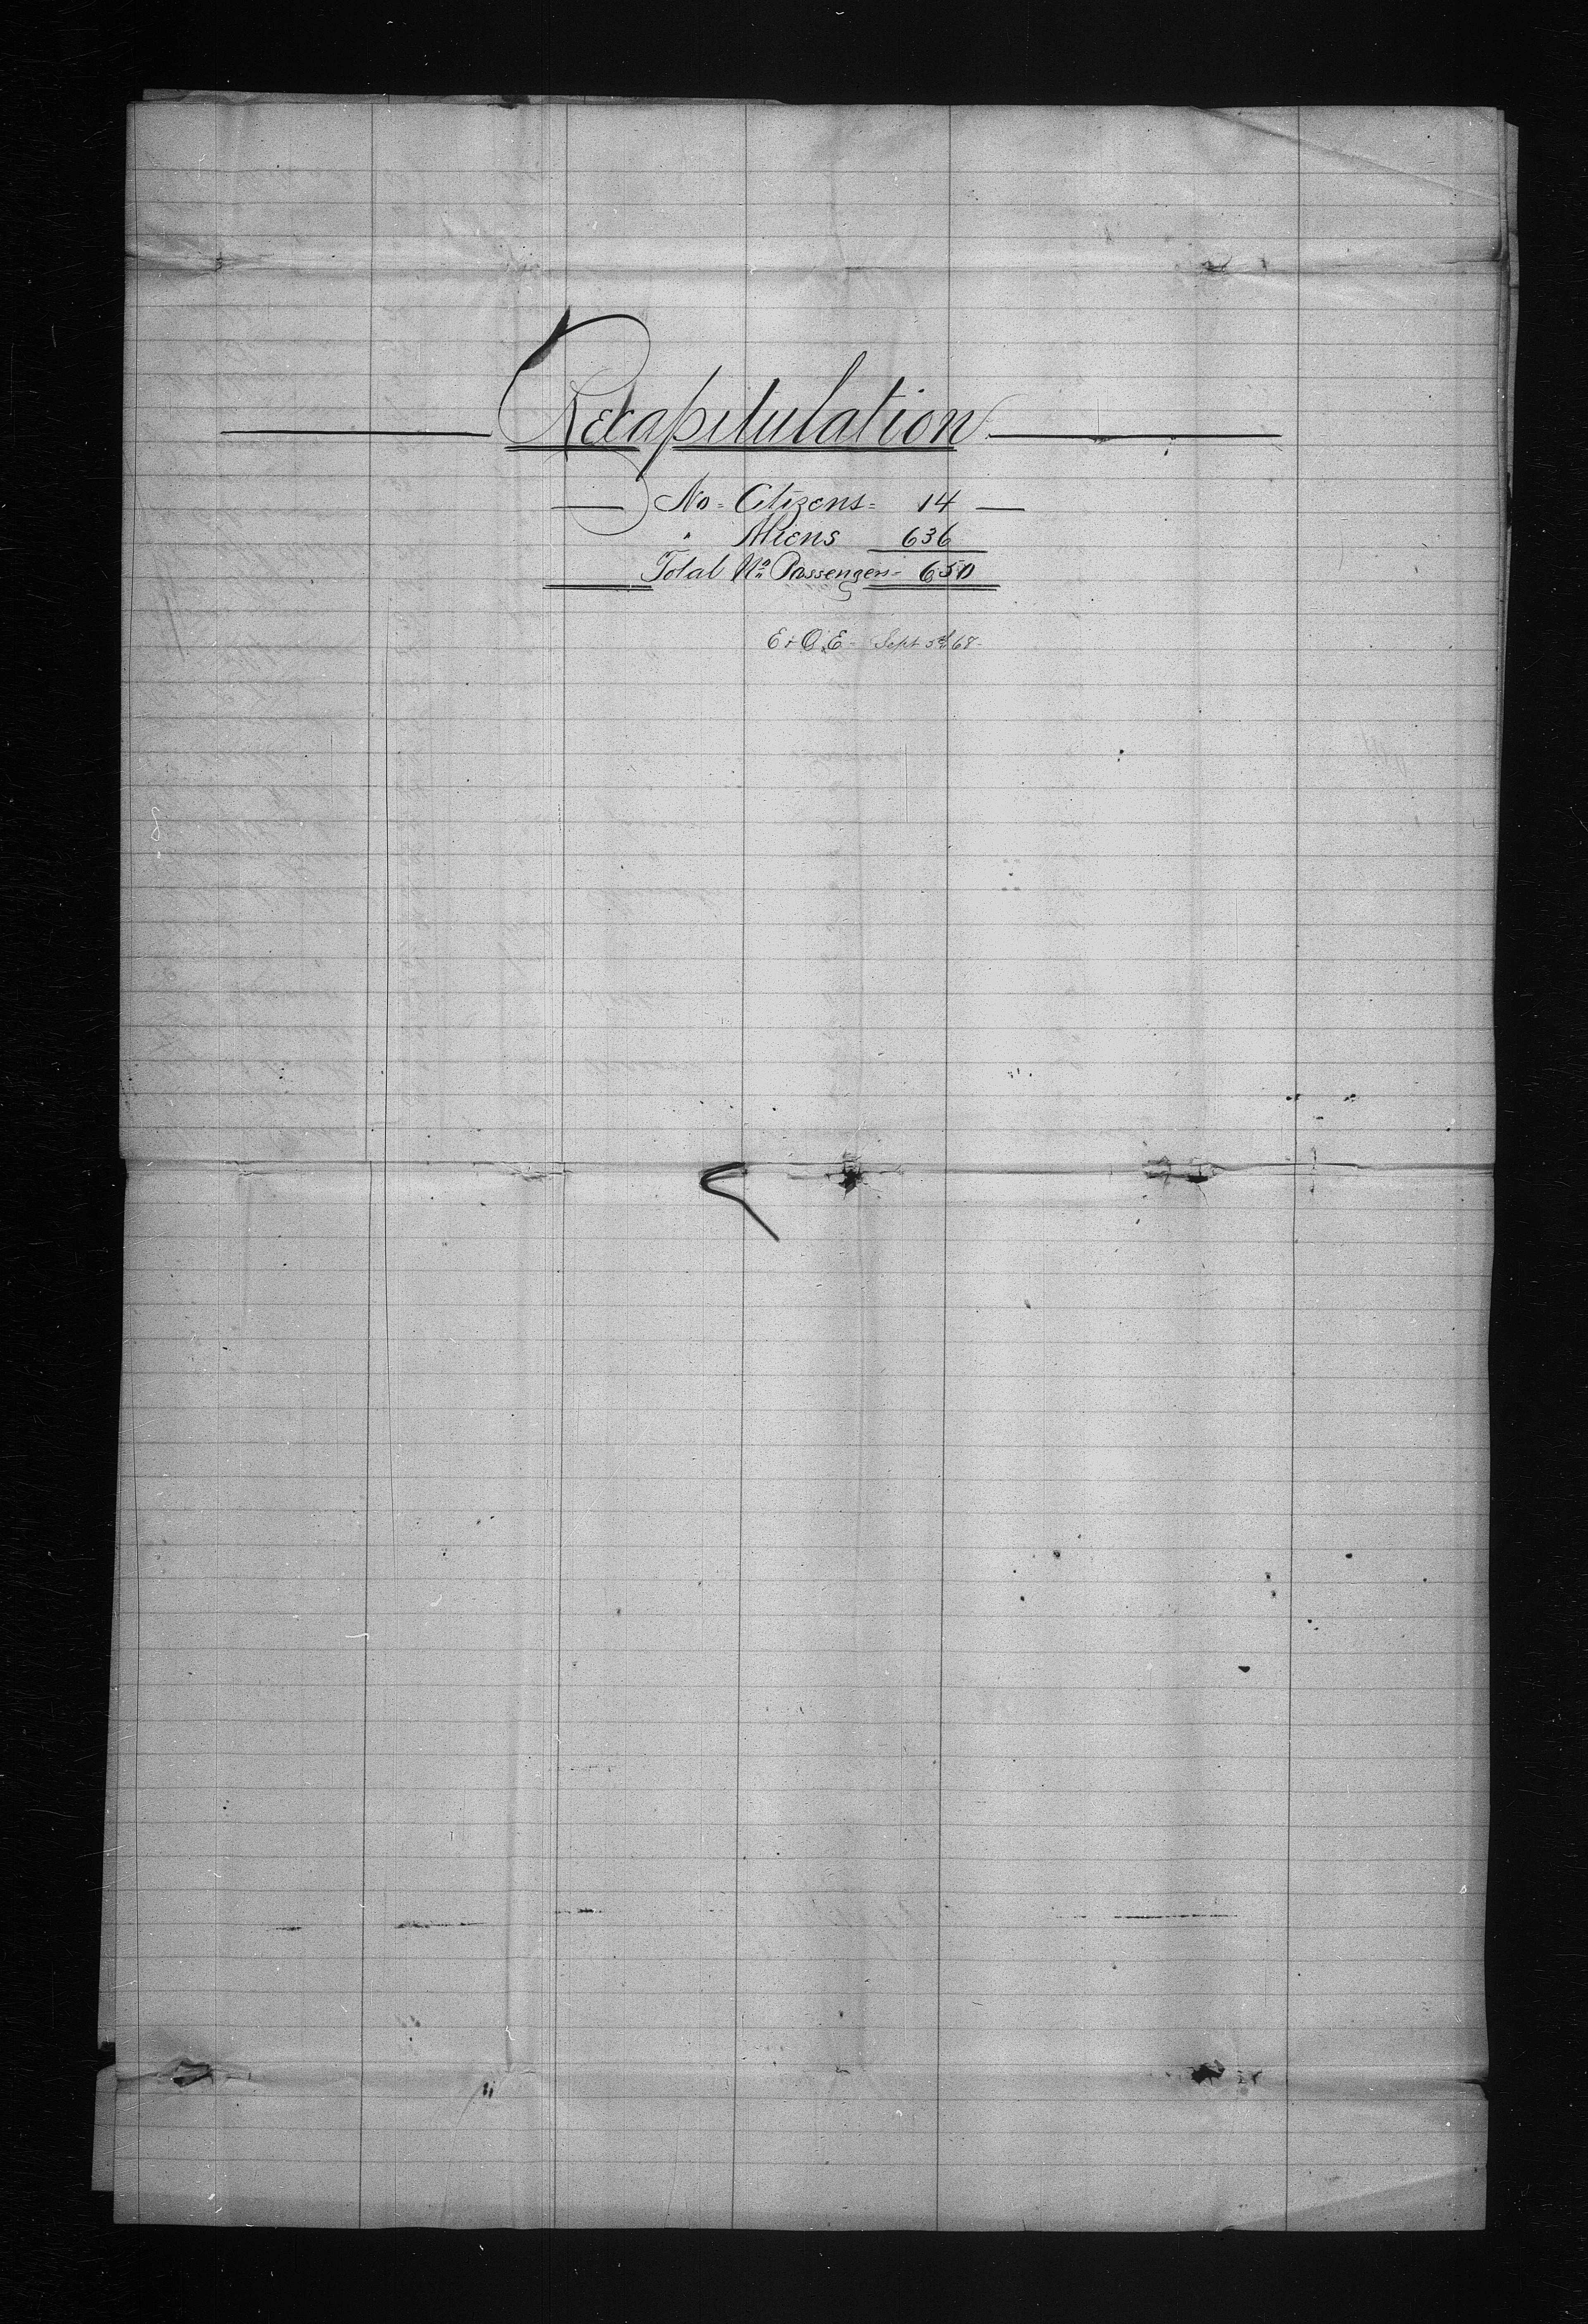 Recapitulation
No = Citizens = 14
" Aliens 636
Total No Passengers 650
E & O. E - Sept 3d 68 -